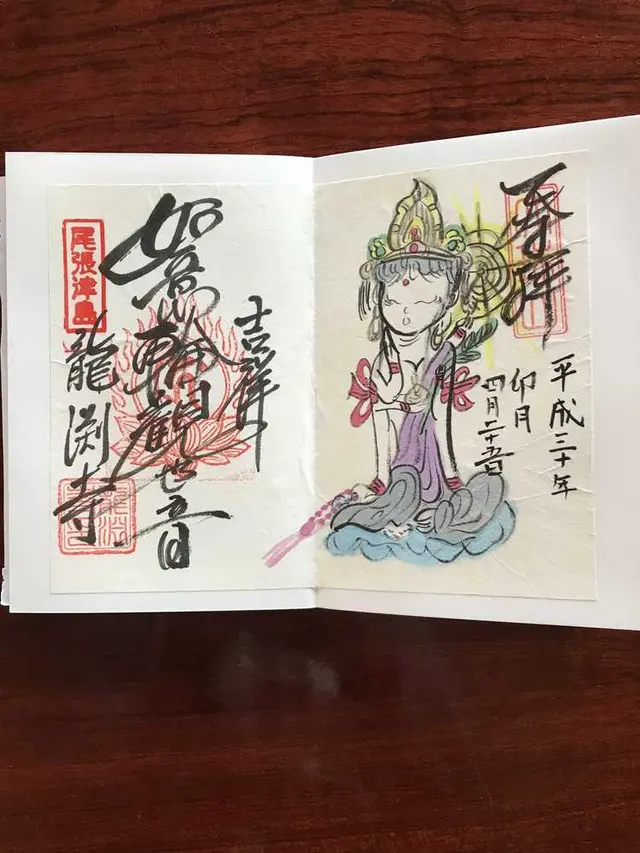 奉拝
平成三十年
卯月
四月二十五日
吉祥
如意輪觀世音
尾張津島
龍渕寺